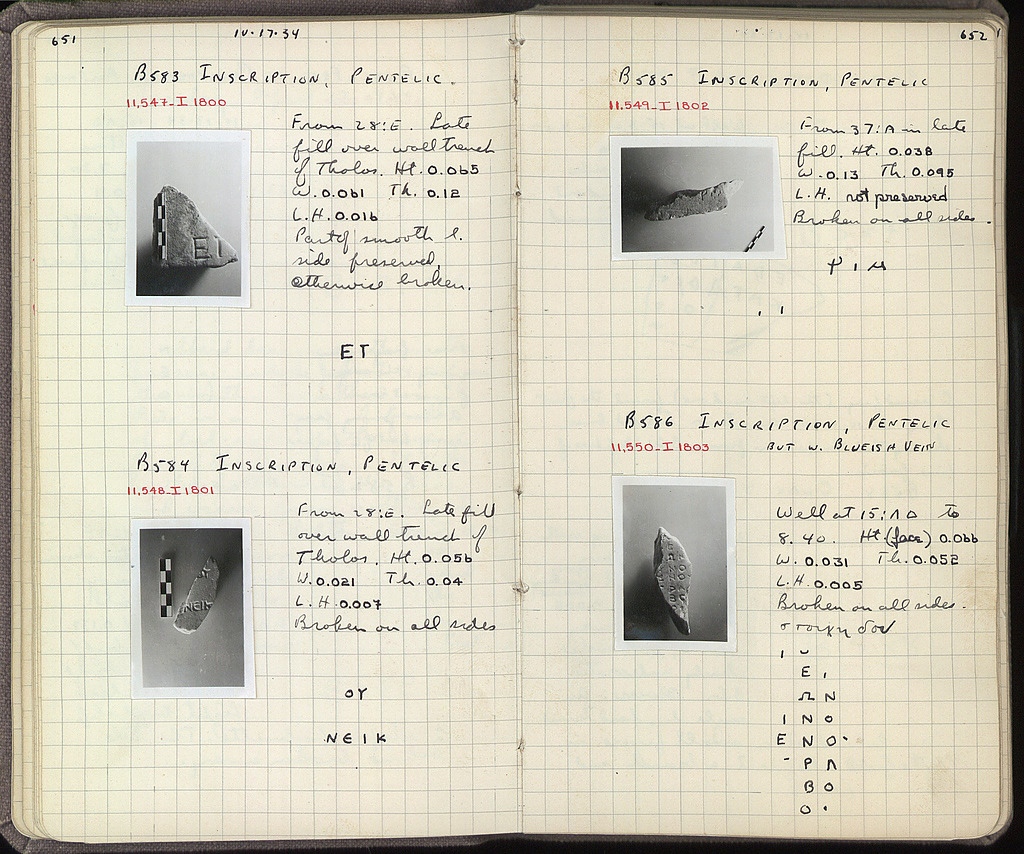 651
IV·17·34
B583 INSCRIPTION, PENTELIC.
11,547-I 1800
From 28:E. Late
fill over wall trench
of Tholos. Ht. 0.065
W. 0.061 Th. 0.12
L.H. 0.016
Part of smooth l.
side preserved,
otherwise broken.
ET
B584 INSCRIPTION, PENTELIC
11,548-I 1801
From 28:E. Late fill
over wall trench of
Tholos. Ht. 0.056
W. 0.021 Th. 0.04
L.H. 0.007
Broken on all sides
OY
NEIK
652
B585 INSCRIPTION, PENTELIC
11,549-I 1802
From 37:A in late
fill. Ht. 0.038
W. 0.13 Th. 0.095
L.H. not preserved
Broken on all sides.
B586 INSCRIPTION, PENTELIC
11,550-I 1803 BUT W. BLUEISH VEIN
Well at 15:ΛΔ to
8.40. Ht (face) 0.066
W. 0.031 Th. 0.052
L.H. 0.005
Broken on all sides.
στοιχηδον
Ε
Ω Ν
Ι Ν Ο
Ε Ν Ο
Ρ Λ
Β Ο
Ο